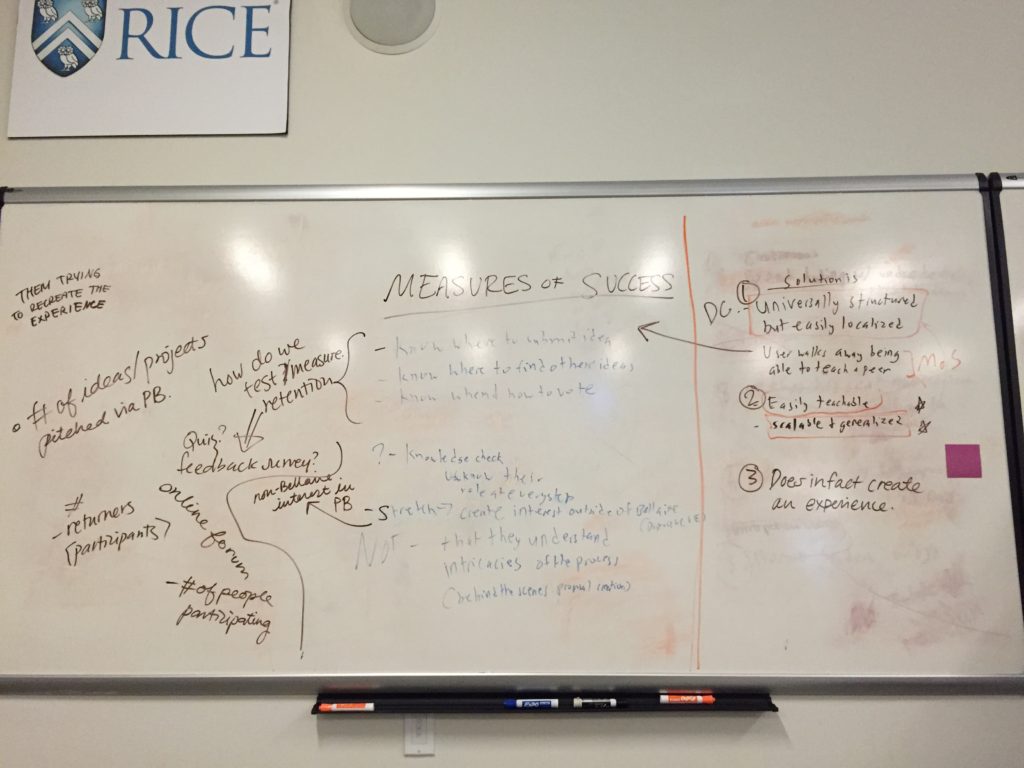 RICE®
THEM TRYING
TO RECREATE THE
EXPERIENCE
# of ideas/projects
pitched via PB.
how do we
test/measure.
retention
Quiz?
feedback survey?
non-Bellaire
interest in
PB
#
- returners
(participants)
online forum
- # of people
participating
MEASURES OF SUCCESS
- Know where to submit idea
- Know where to find other ideas
- Know when & how to vote
? - Knowledge check
know their
role at every step
- Stretch → create interest outside of Bellaire
NOT - that they understand
intricacies of the process
(behind the scenes proposal creation)
① Solution is
DC. - Universally structured
but easily localized
User walks away being
able to teach a peer
MoS
② Easily teachable
- scalable & generalized
③ Does infact create
an experience.